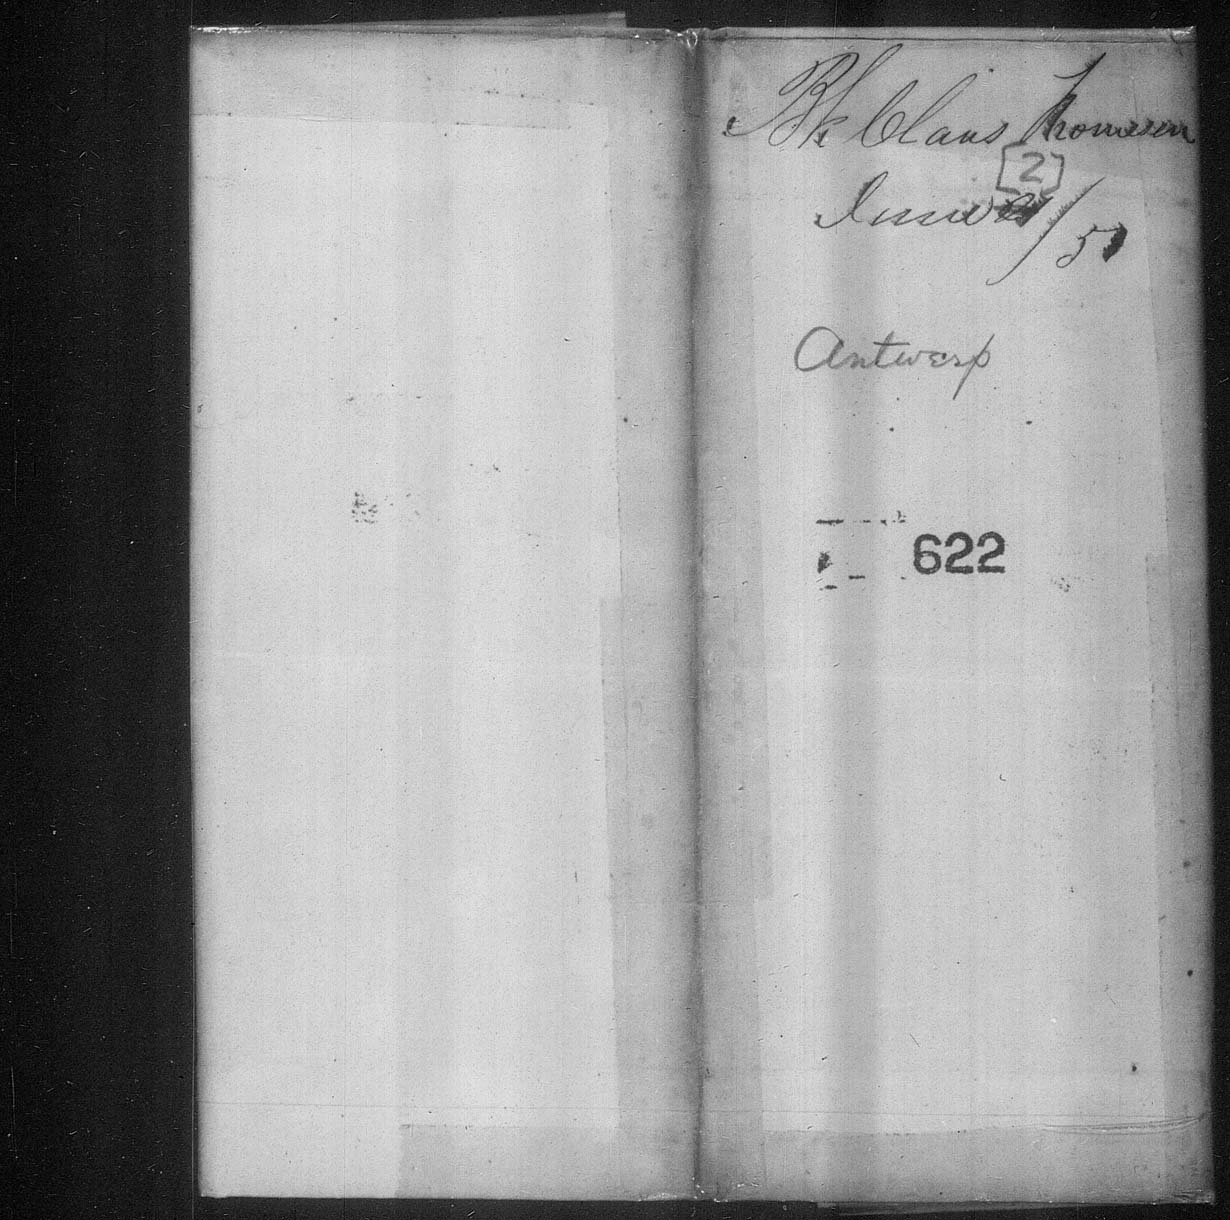 Bk Claus Thomsen
[2]
June /51
Antwerp
622